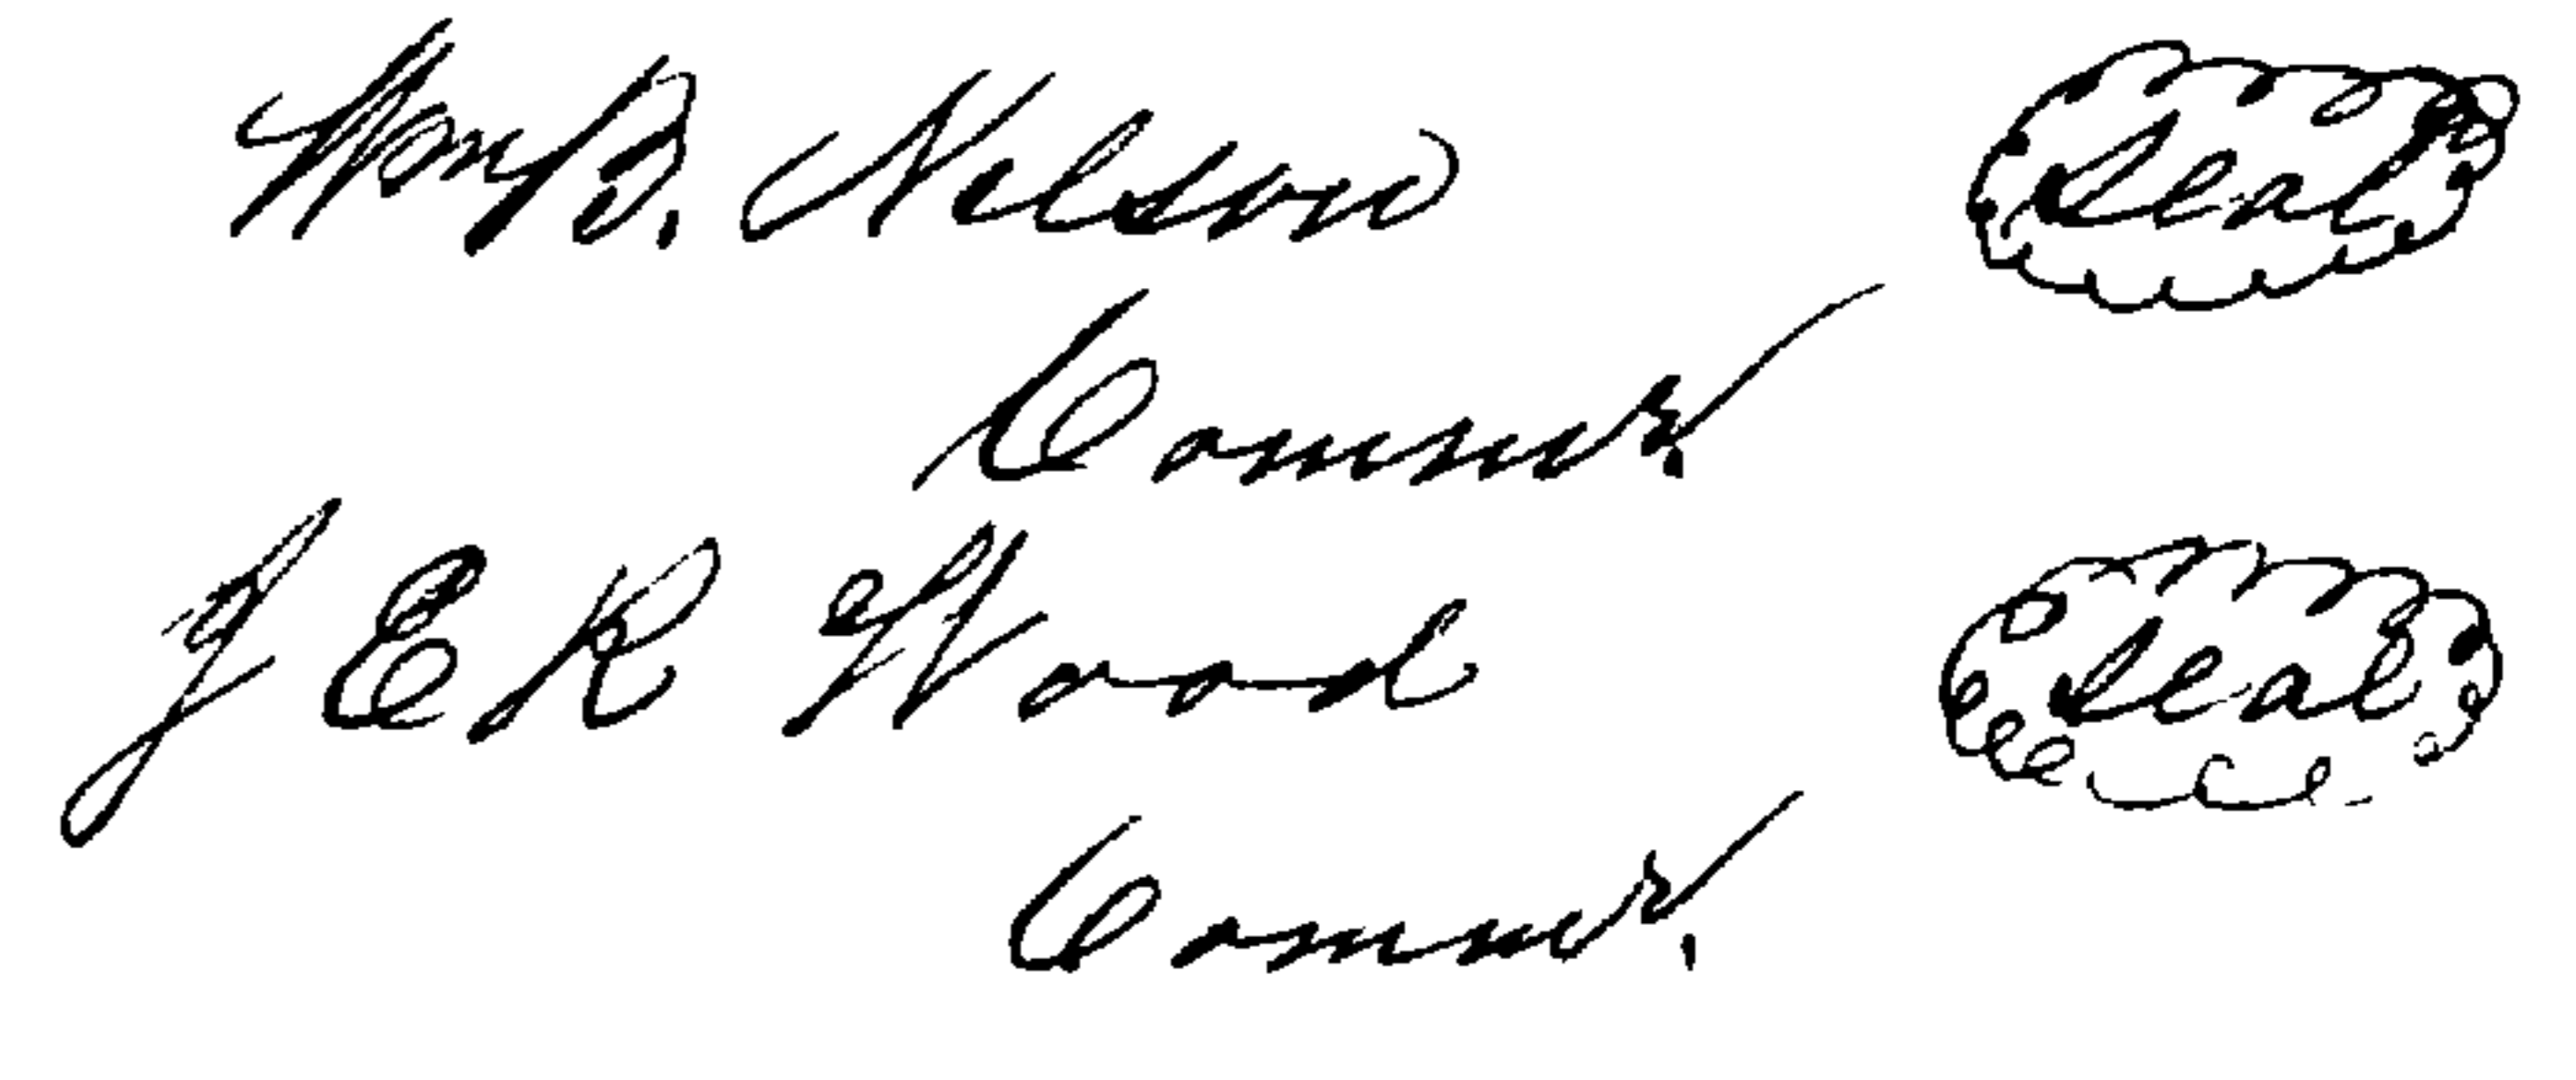 Wm B. Nelson Seal
Commr.
J E R Wood Seal
Commr.